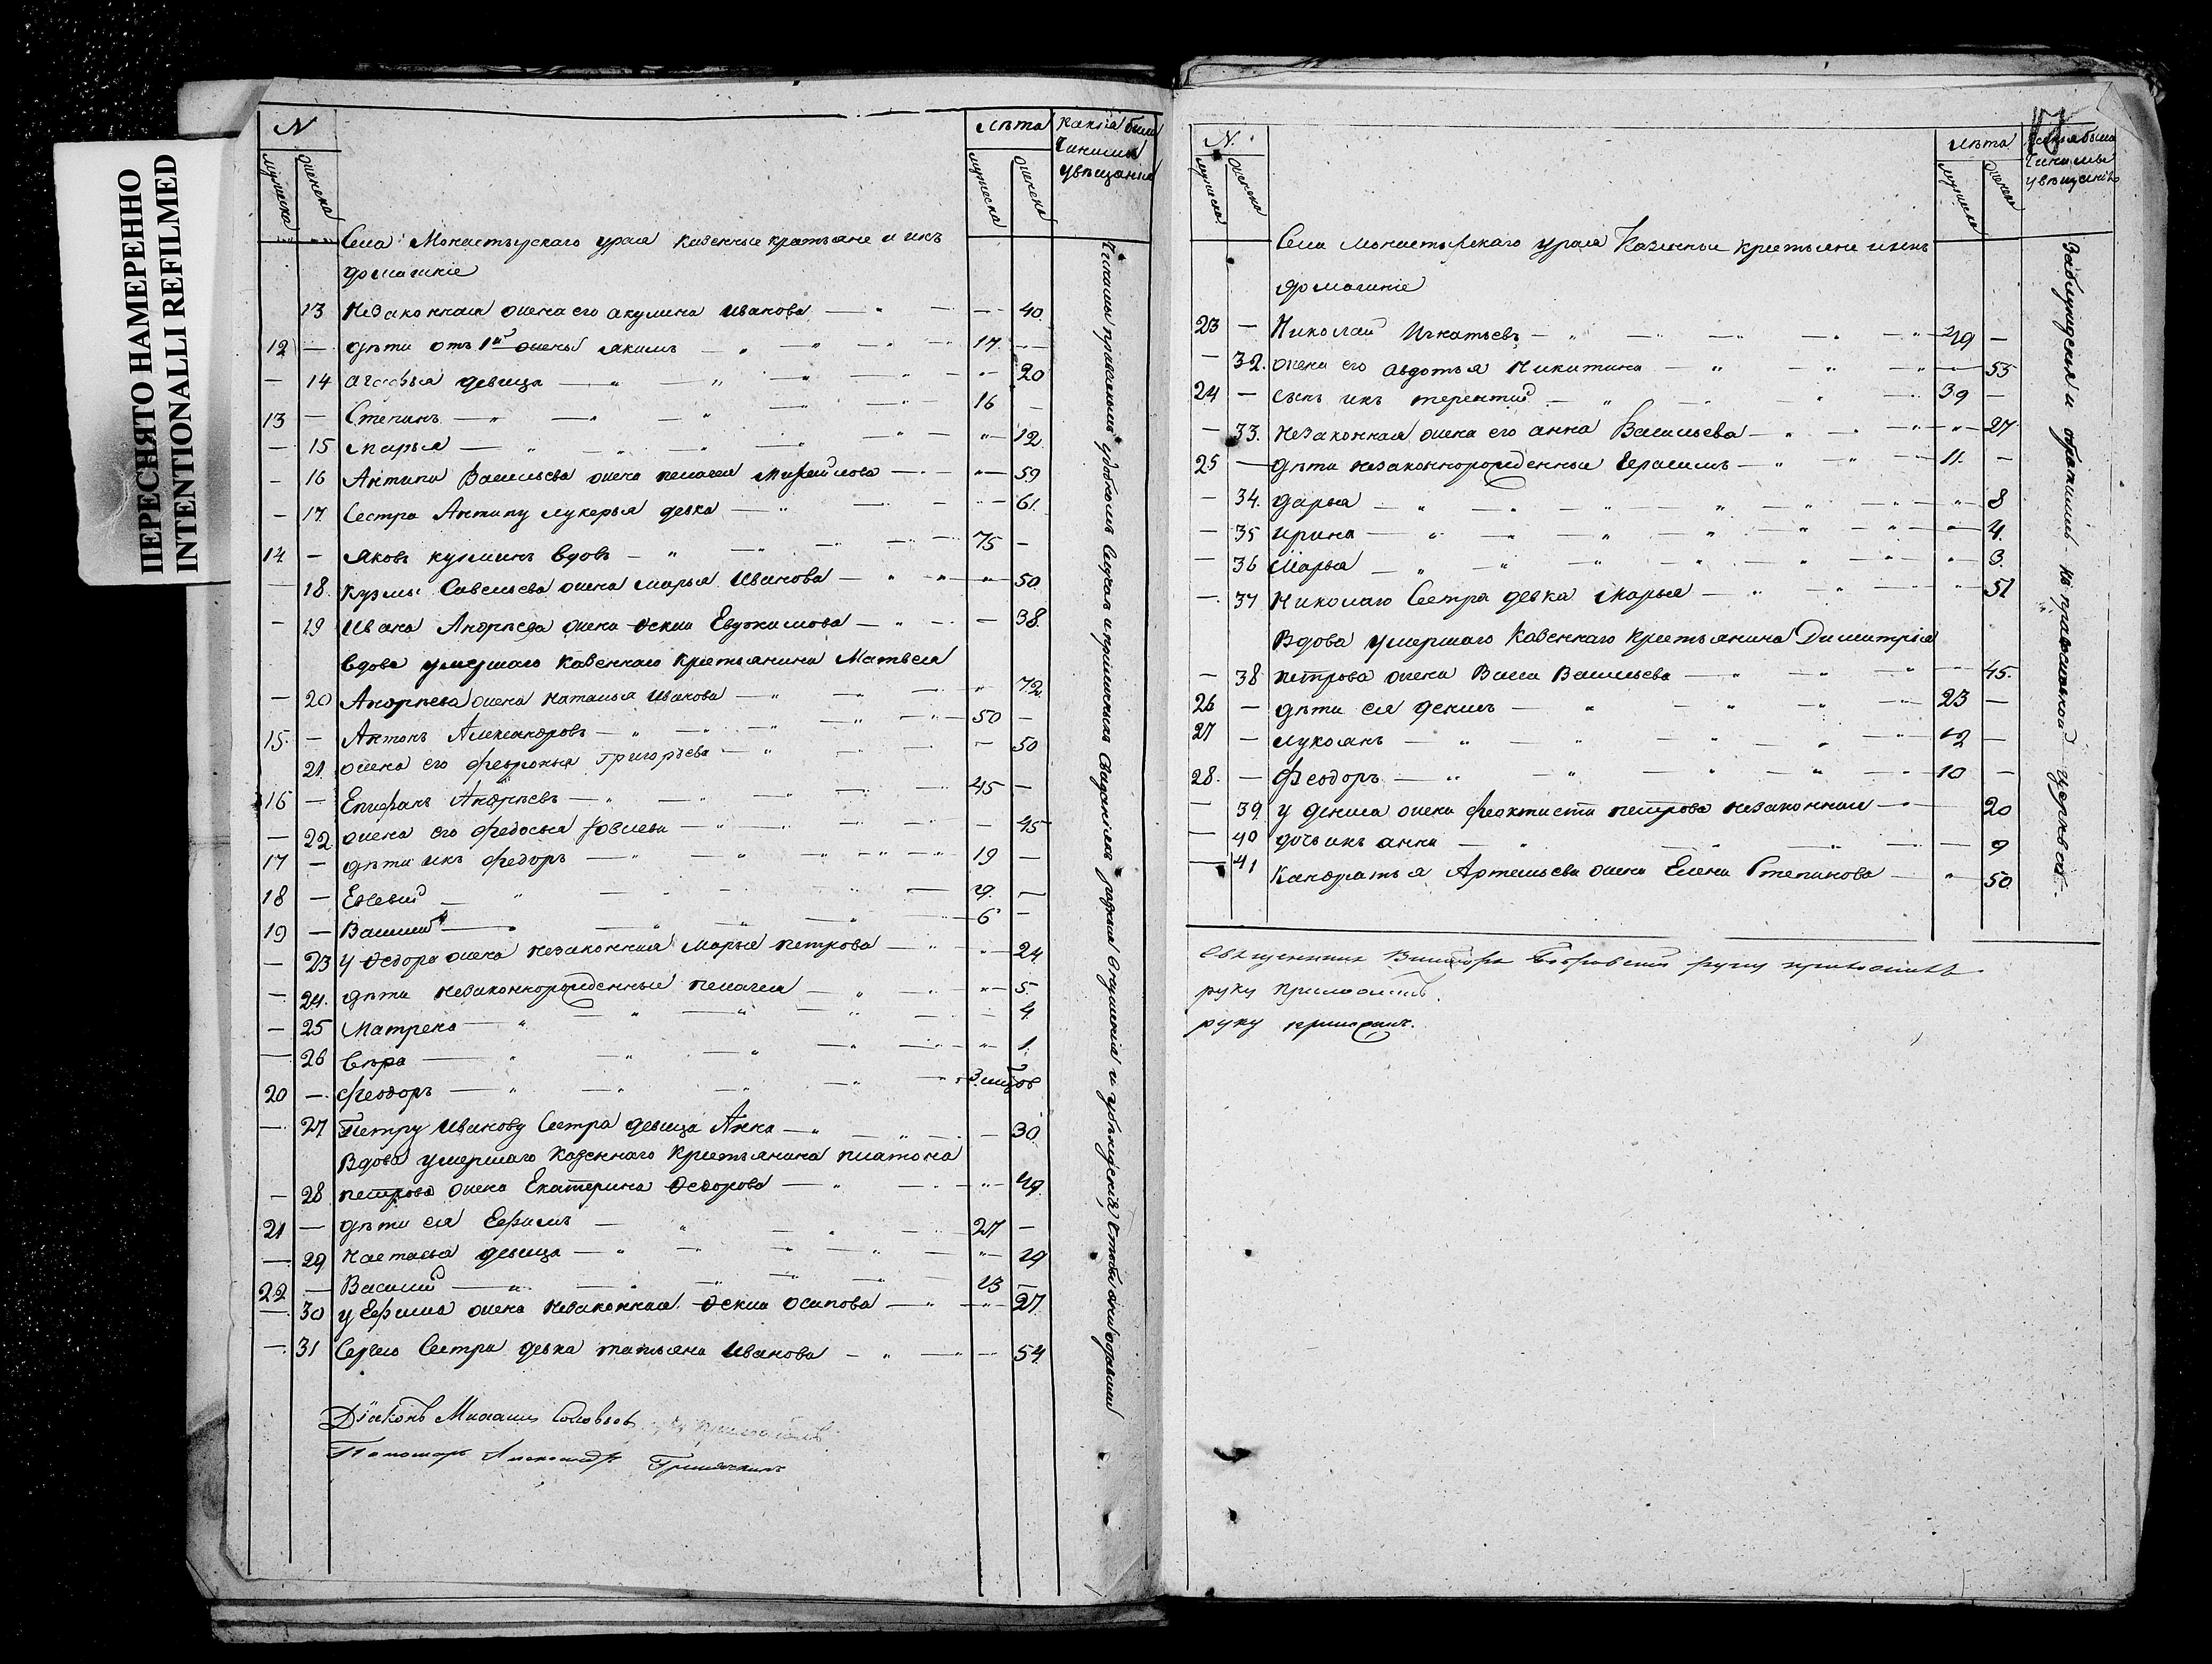 ПЕРЕСНЯТО НАМЕРЕННО
INTENTIONALLI REFILMED
N
мужеска
женска
лѣта
мужеска
женска
какія были
чинимы
увѣщанія
Села Монастырскаго урая казенные крестьяне и ихъ
домашніе
13 Незаконная жена его акулина иванова 40
12 дѣти отъ 1й жены якимъ 17
14 агафья девица 20
13 Степанъ 16
15 марья 12
16 Антипа Васильева жена пелагея михайлова 59
17 Сестра Антипу лукерья девка 61
14 яковъ кузминъ вдовъ 75
18 Кузмы Савельева жена марья Иванова 50
19 Ивана Андрѣева жена Ѳекла Евдокимова 38
вдова умершаго казеннаго крестьянина Матвея
20 Андрѣева жена наталья иванова 72
15 Антонъ Александровъ 50
21 жена его феврония григорьева 50
16 Епифанъ Андрѣевъ 45
22 жена его федосья 45
17 дѣти ихъ федоръ 19
18 Евсевий 9
19 Василий 6
23 у Ѳедора жена незаконная марья петрова 24
24 дѣти незаконнорожденные пелагея 5
25 Матрена 4
26 вѣра 1
20 феодоръ 3
27 Петру Иванову сестра девица Анна 30
Вдова умершаго казеннаго крестьянина платона
28 петрова жена Екатерина Ѳедорова 49
21 дѣти ея Ефимъ 27
29 настасья девица 29
22 Василий 23
30 у Ефима жена незаконная Ѳекла осипова 27
31 Сергею сестра девка татьяна иванова 54
Діаконъ Михаилъ Соловьевъ руку приложилъ
Пономарь Александръ
Чинимы приватнымъ
внушенія и убѣжденія, чтобы они оставили
N.
мужеска
женска
лѣта
мужеска
женска
какія были
чинимы
увѣщанія
Села монастырскаго урая Казенные крестьяне и ихъ
домашніе
23 Николай Игнатьевъ 49
32 жена его авдотья Никитина 55
24 сынъ ихъ терентий 39
33 незаконная жена его анна Васильева 27
25 дѣти незаконнорожденные Герасимъ 11
34 дарья 8
35 ирина 4
36 Марья 3
37 Николаю сестра девка марья 51
Вдова умершаго казеннаго крестьянина Димитрія
38 петрова жена Васса Васильева 45
26 дѣти ея денисъ 23
27 лукоянъ 12
28 феодоръ 10
39 у дениса жена феоктиста петрова незаконная 20
40 дочь ихъ анна 9
41 Кандратья Артемьева жена Елена Степанова 50
Заблужденія и обратились къ православной церкви
Священникъ Викторъ Бобровский руку приложилъ
руку приложилъ.
руку приложилъ.